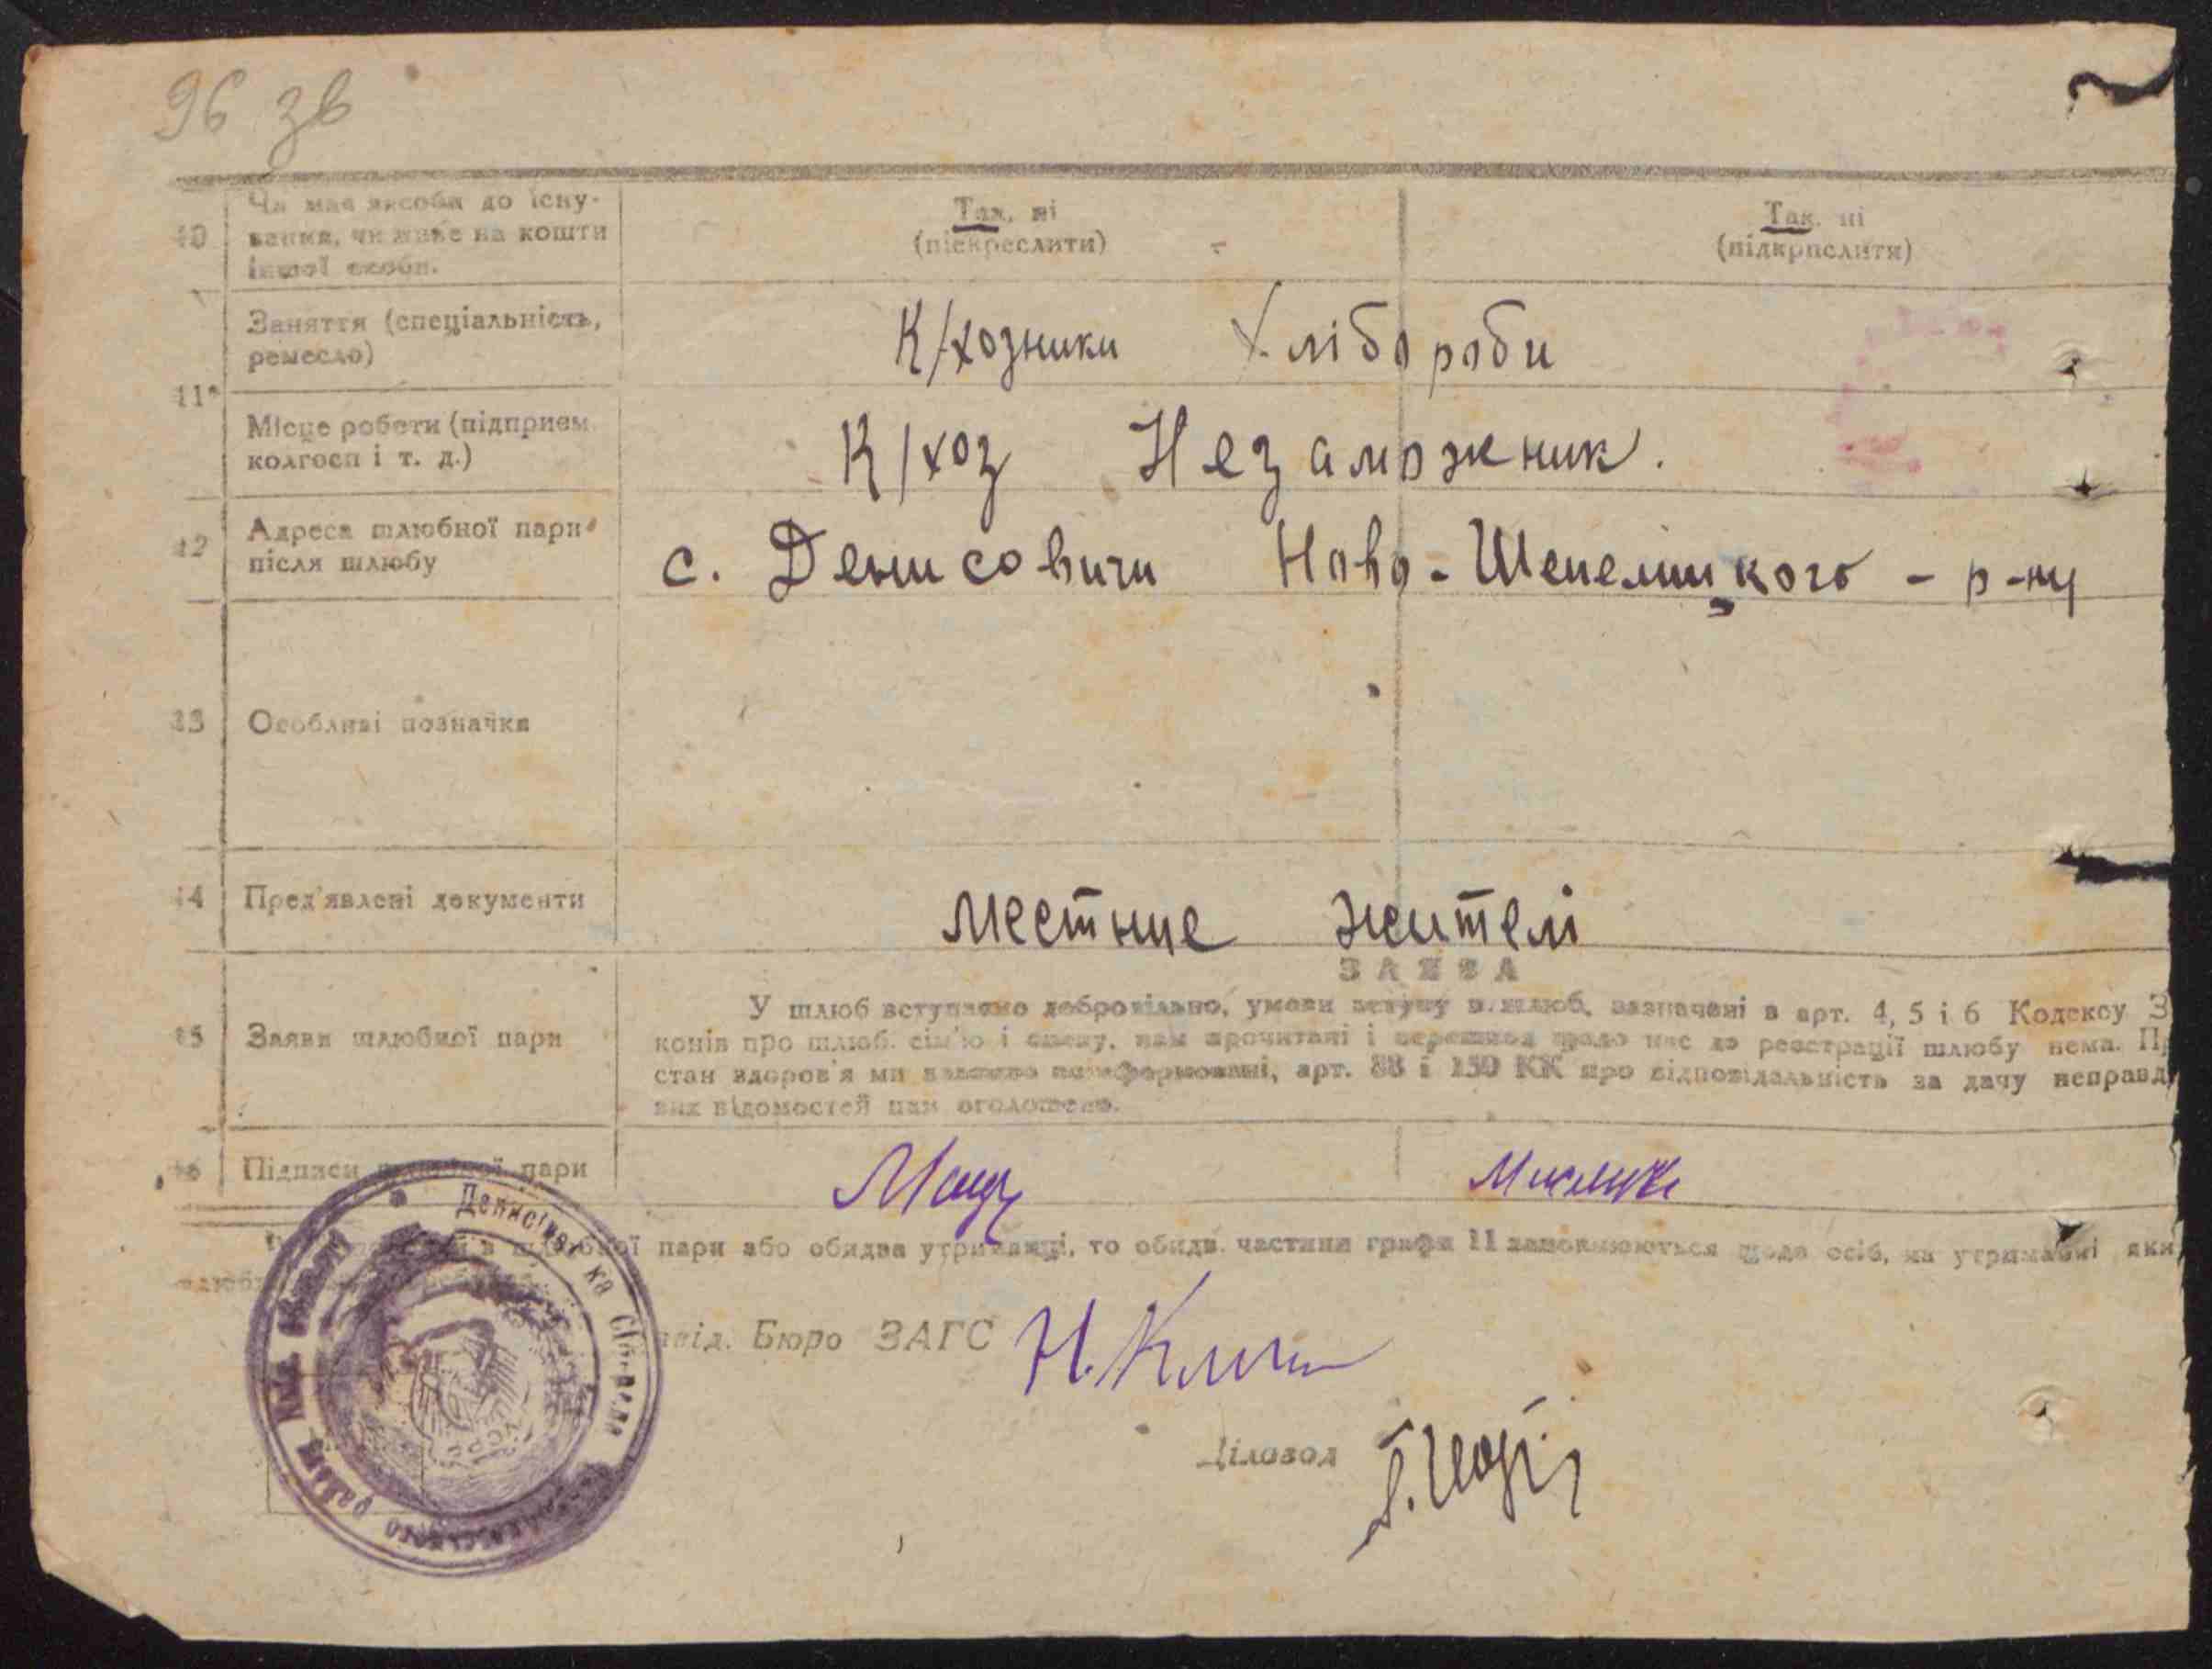 96 зв
10 Чи має яксоби до існу-
вання, чи живе на кошти
іншої особи.
Так, ні
(піскреслити)
Так, ні
(підкрислити)
11*
Заняття (спеціальність,
ремесло)
К/хозники Хлібороби
Місце роботи (підприєм.
колгосп і т. д.)
К/хоз Незаможник.
12 Адреса шлюбної пари
після шлюбу
с. Денисовичи Ново-Шепелицкого - р-ну
13 Особливі позначки
14 Пред'явлені документи
Местние жителі
15 Заяви шлюбної пари
ЗАЯВА
У шлюб вступаємо добровільно, умови вступу в шлюб, зазначені в арт. 4, 5 і 6 Кодексу З
конів про шлюб, сім'ю і опеку, нам прочитані і перешкод щодо нас до реєстрації шлюбу нема. Пр
стан здоров'я ми взаємно поінформовані, арт. 88 і 150 КК про відповідальність за дачу неправд
вих відомостей нам оголошено.
16 Підписи шлюбної пари
пари або обидва утриманці, то обидві частини графи 11 заповнюються щодо осіб, на утриманні яки
Бюро ЗАГС
Діловод
Сільрада
району
УСРР